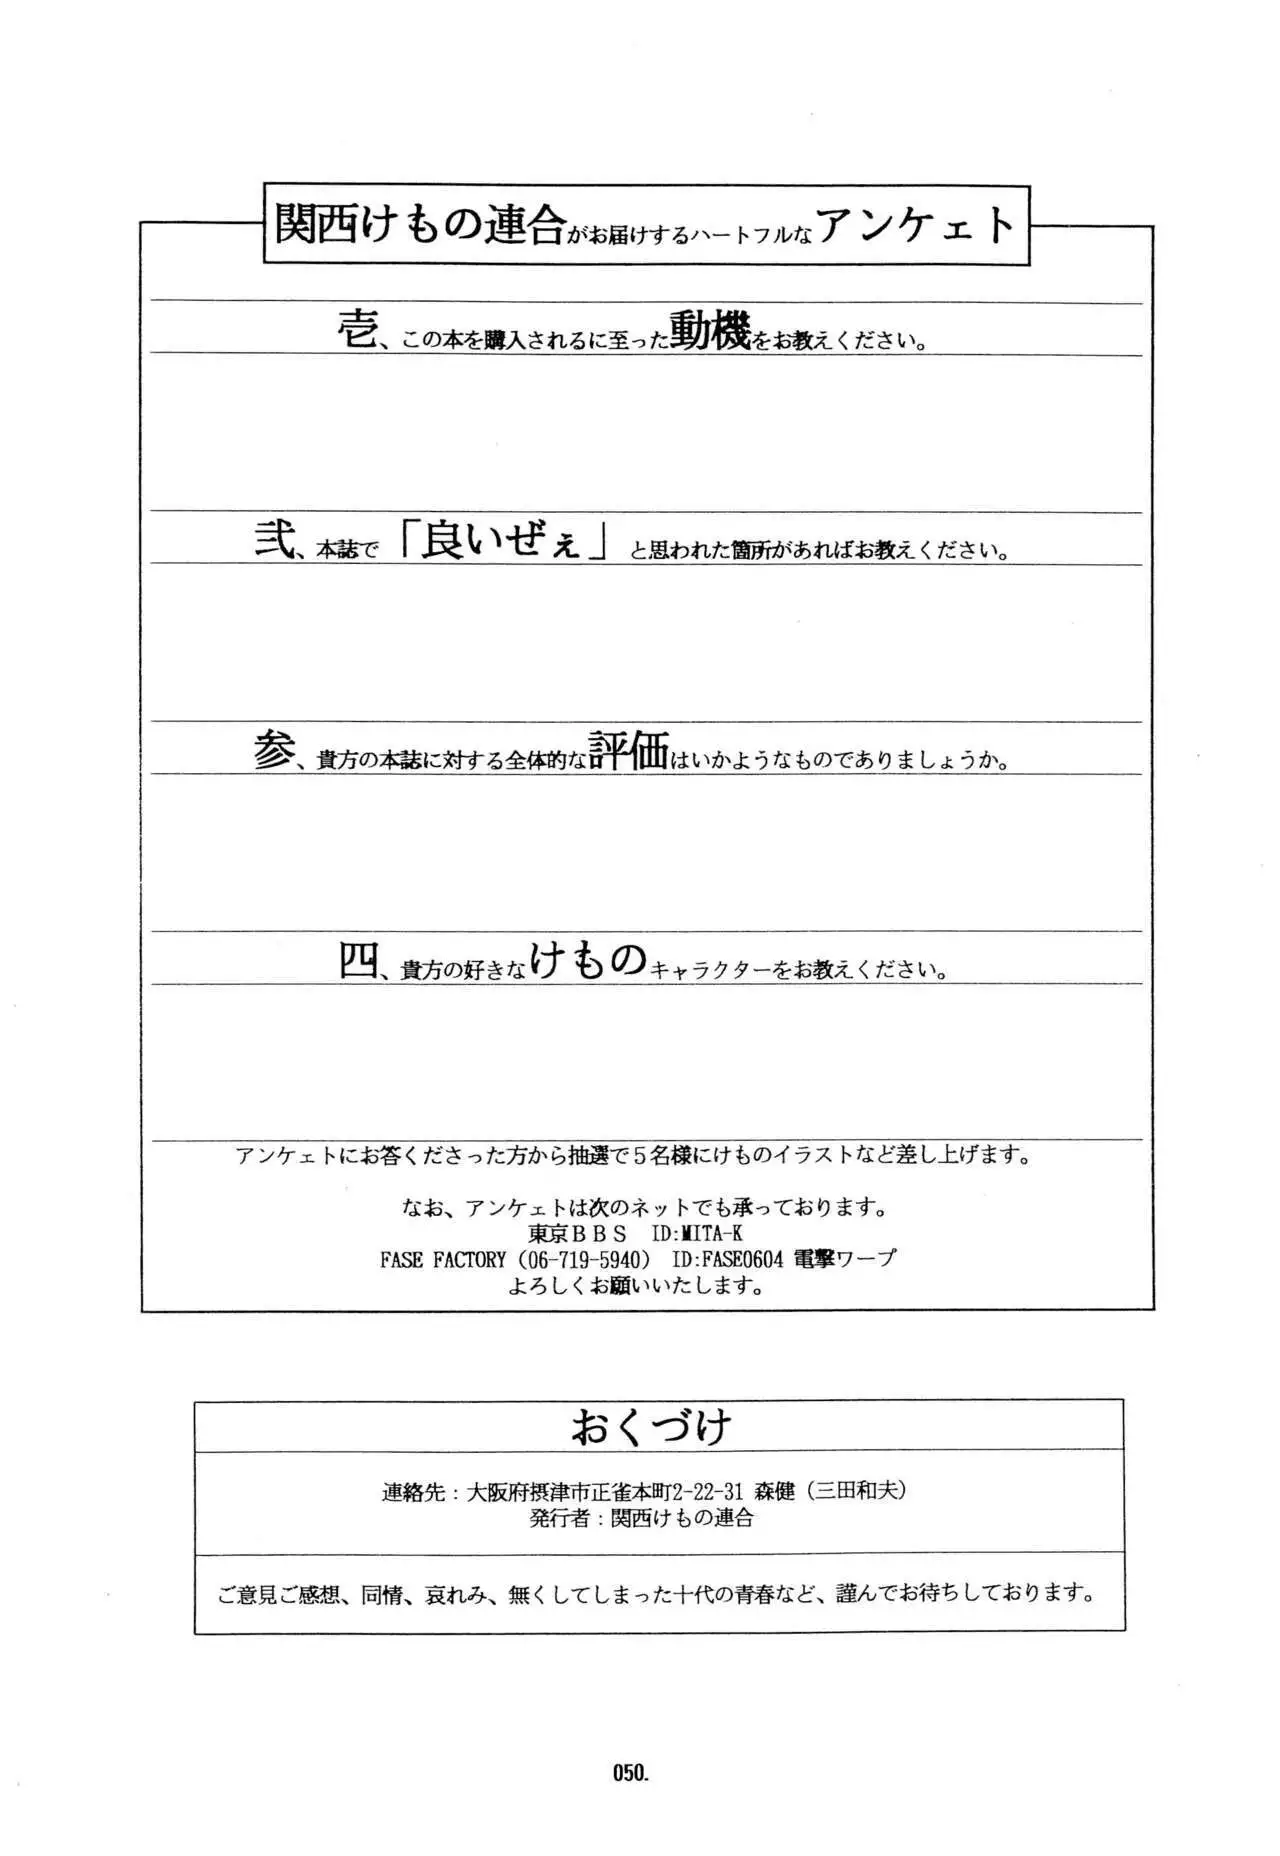 関西けもの連合がお届けするハートフルなアンケェト
壱、この本を購入されるに至った動機をお教えください。
弐、本誌で「良いぜぇ」と思われた箇所があればお教えください。
参、貴方の本誌に対する全体的な評価はいかようなものでありましょうか。
四、貴方の好きなけものキャラクターをお教えください。
アンケェトにお答くださった方から抽選で５名様にけものイラストなど差し上げます。
なお、アンケェトは次のネットでも承っております。
東京ＢＢＳ　ID:MITA-K
FASE FACTORY（06-719-5940）　ID:FASE0604 電撃ワープ
よろしくお願いいたします。
おくづけ
連絡先：大阪府摂津市正雀本町2-22-31 森健（三田和夫）
発行者：関西けもの連合
ご意見ご感想、同情、哀れみ、無くしてしまった十代の青春など、謹んでお待ちしております。
050.